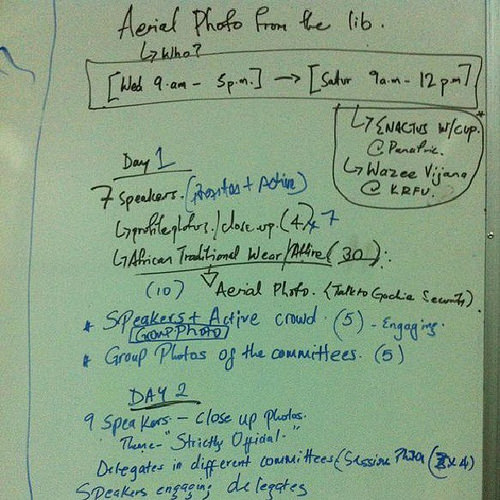 Aerial Photo from the lib.
↳ Who?
[Wed 9.am - 5p.m.] → [Satur 9a.m - 12pm]
↳ ENACTUS W/cup.
@ Panafric.
↳ Wazee Vijana
@ KRFU.
Day 1
7 Speakers. ( + Active)
↳ profile photos./close up. (4) x 7
↳ African Traditional Wear/Attire (30).
(10) Aerial Photo. (Talk to Security).
* Speakers + Active crowd. (5) - Engaging.
Group Photo
* Group Photos of the committees. (5)
DAY 2
9 Speakers - Close up photos.
Theme - "Strictly Official."
Delegates in different committees (Session (2 x 4)
Speakers engaging delegates